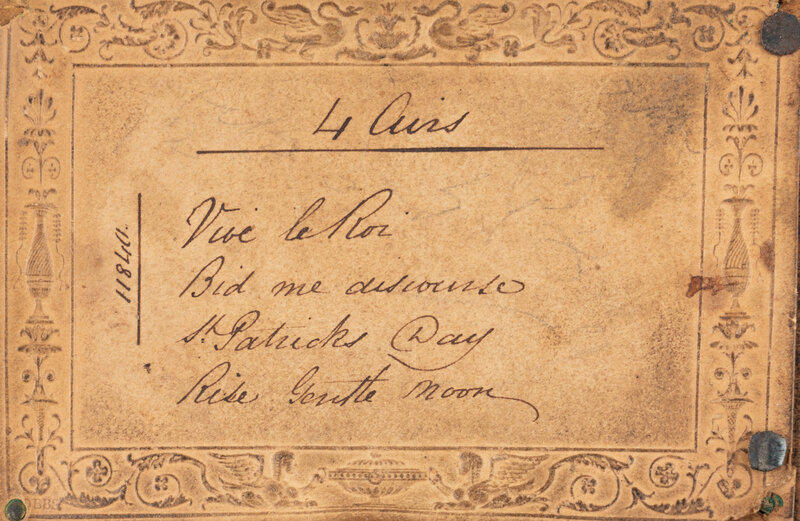 4 Airs
11840.
Vive le Roi
Bid me discourse
St. Patricks Day
Rise Gentle moon